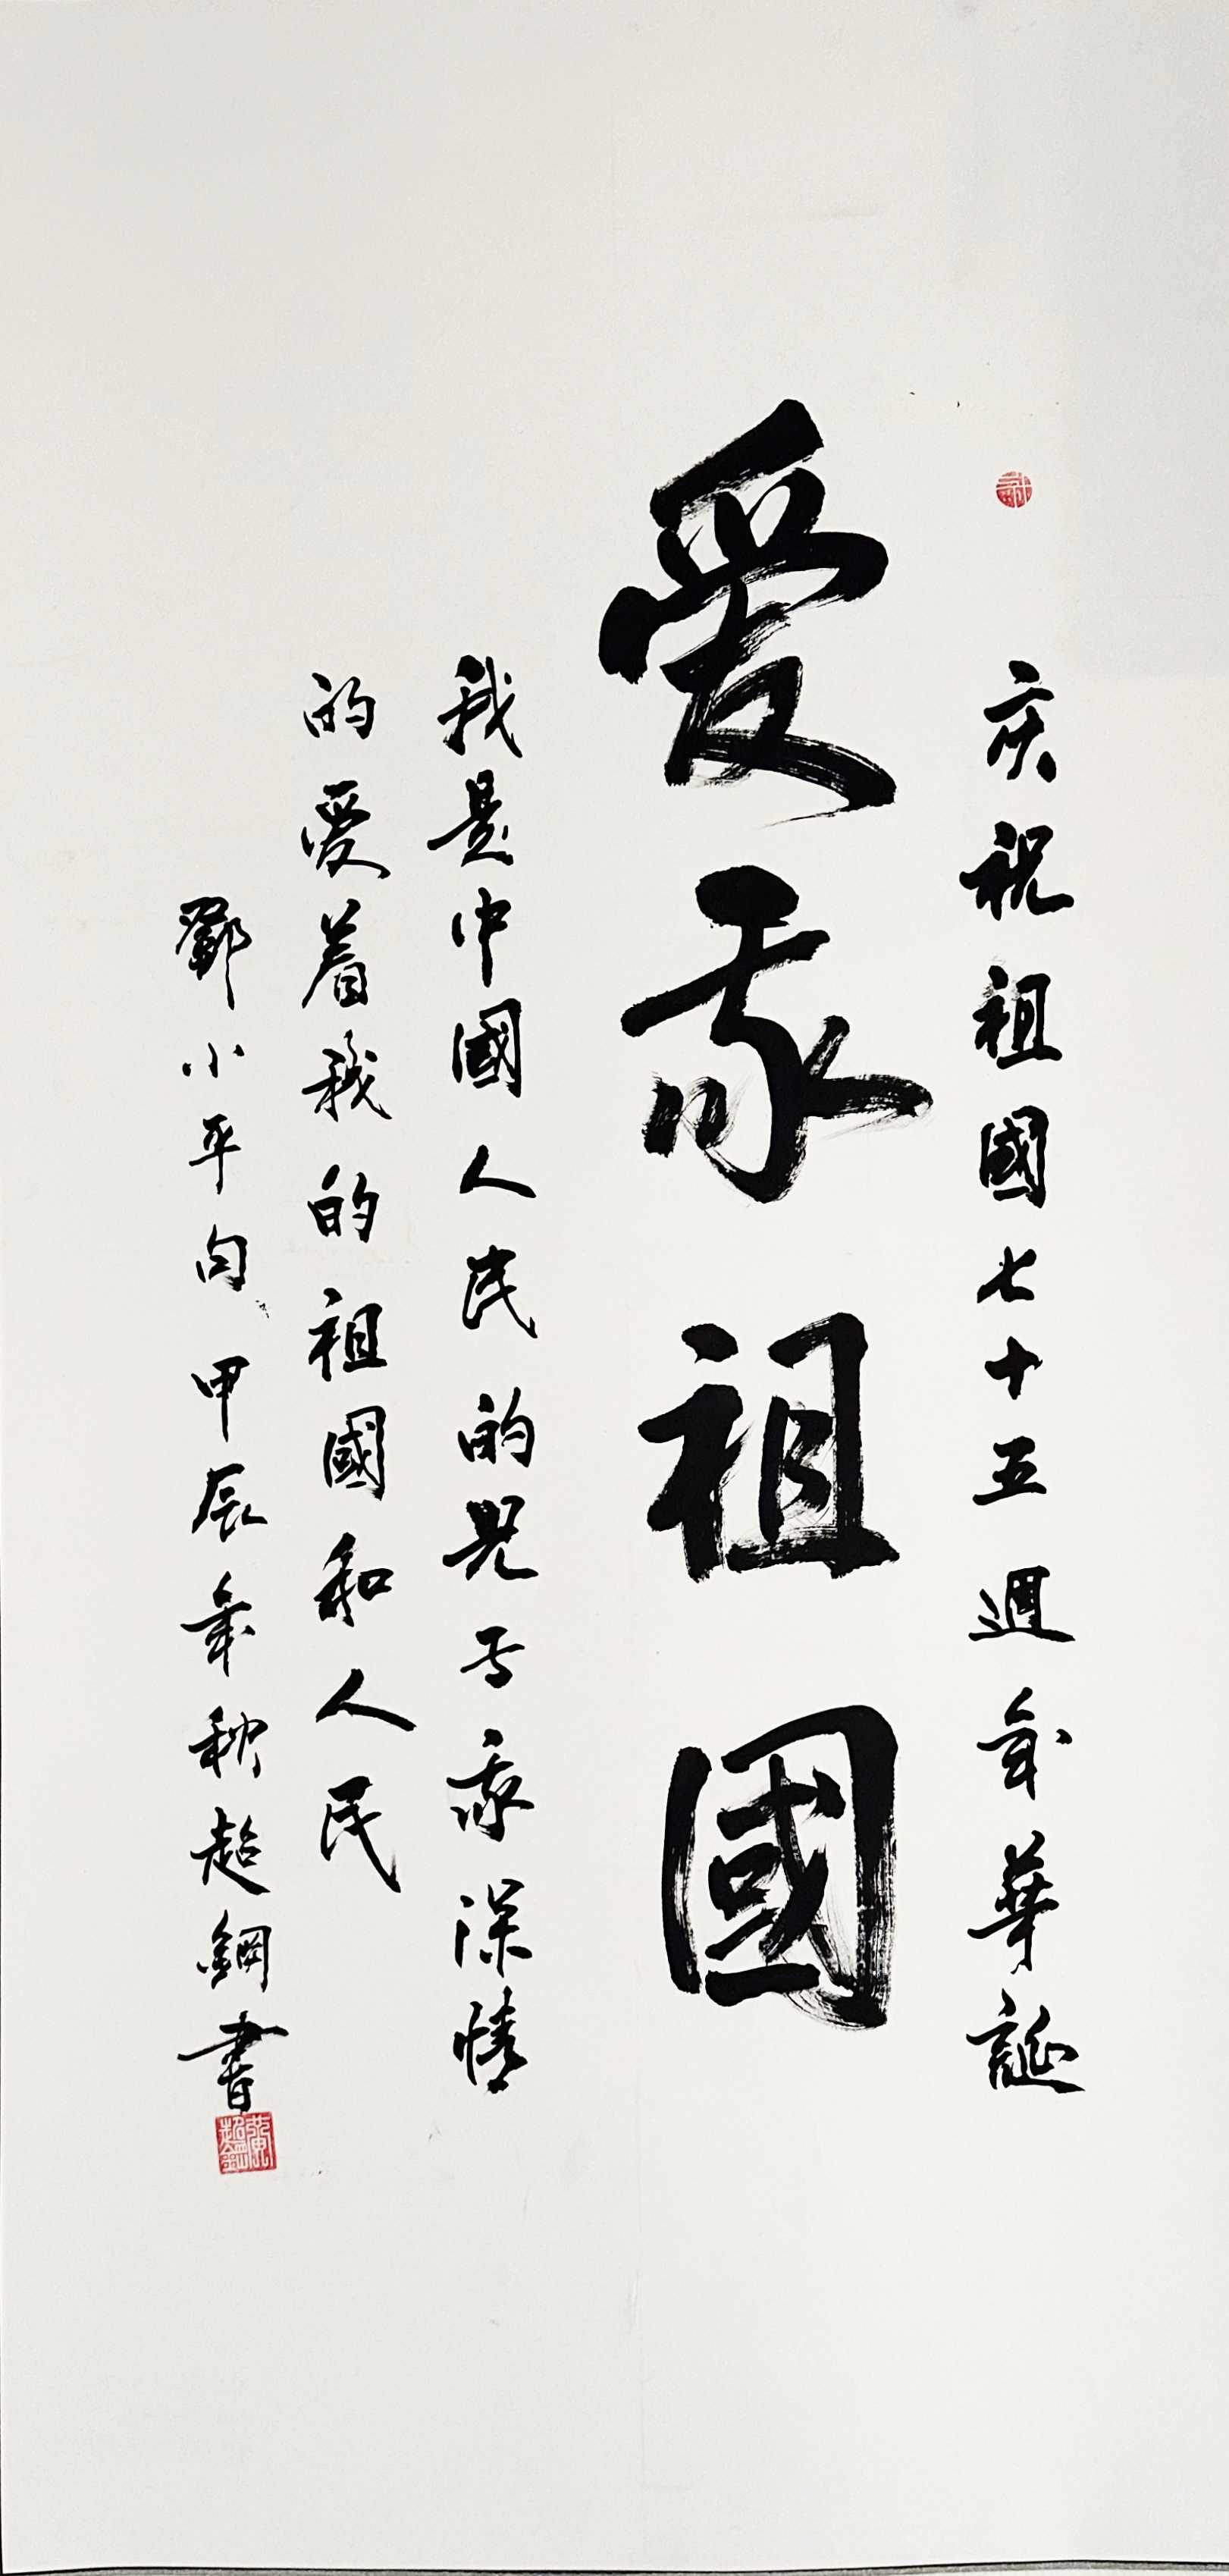 庆祝祖國七十五週年華誕
愛我祖國
我是中國人民的兒子我深情
的愛着我的祖國和人民
鄧小平句甲辰年秋超鋼書